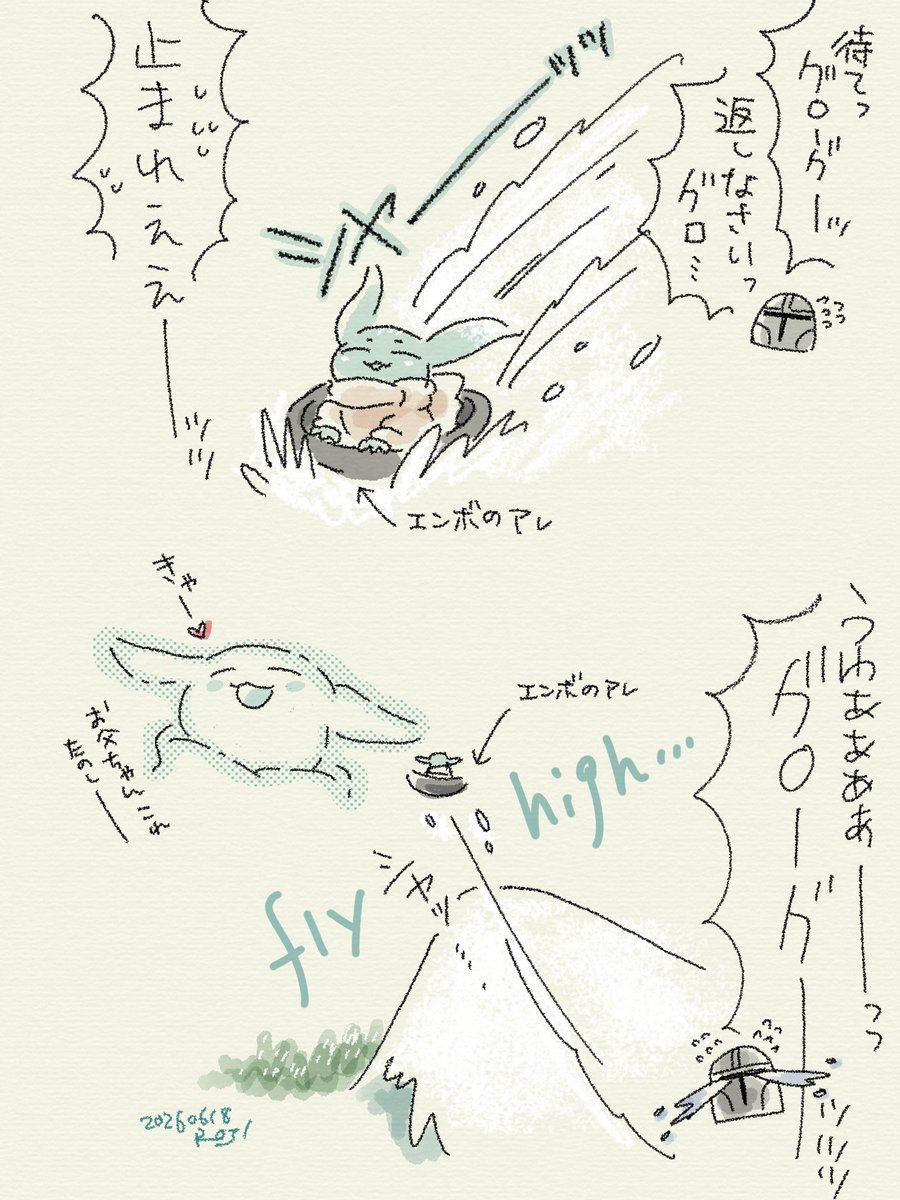 待てっ
グローグーッ
返しなさいっ
グロ…
止まれえええーーッッ
シャーッッ
エンボのアレ
うわあああぁーーっっ
グローグーーッッッ
きゃー♥
お父ちゃんこれ
たのしーー
エンボのアレ
シャッ…
fly
high...
20260618